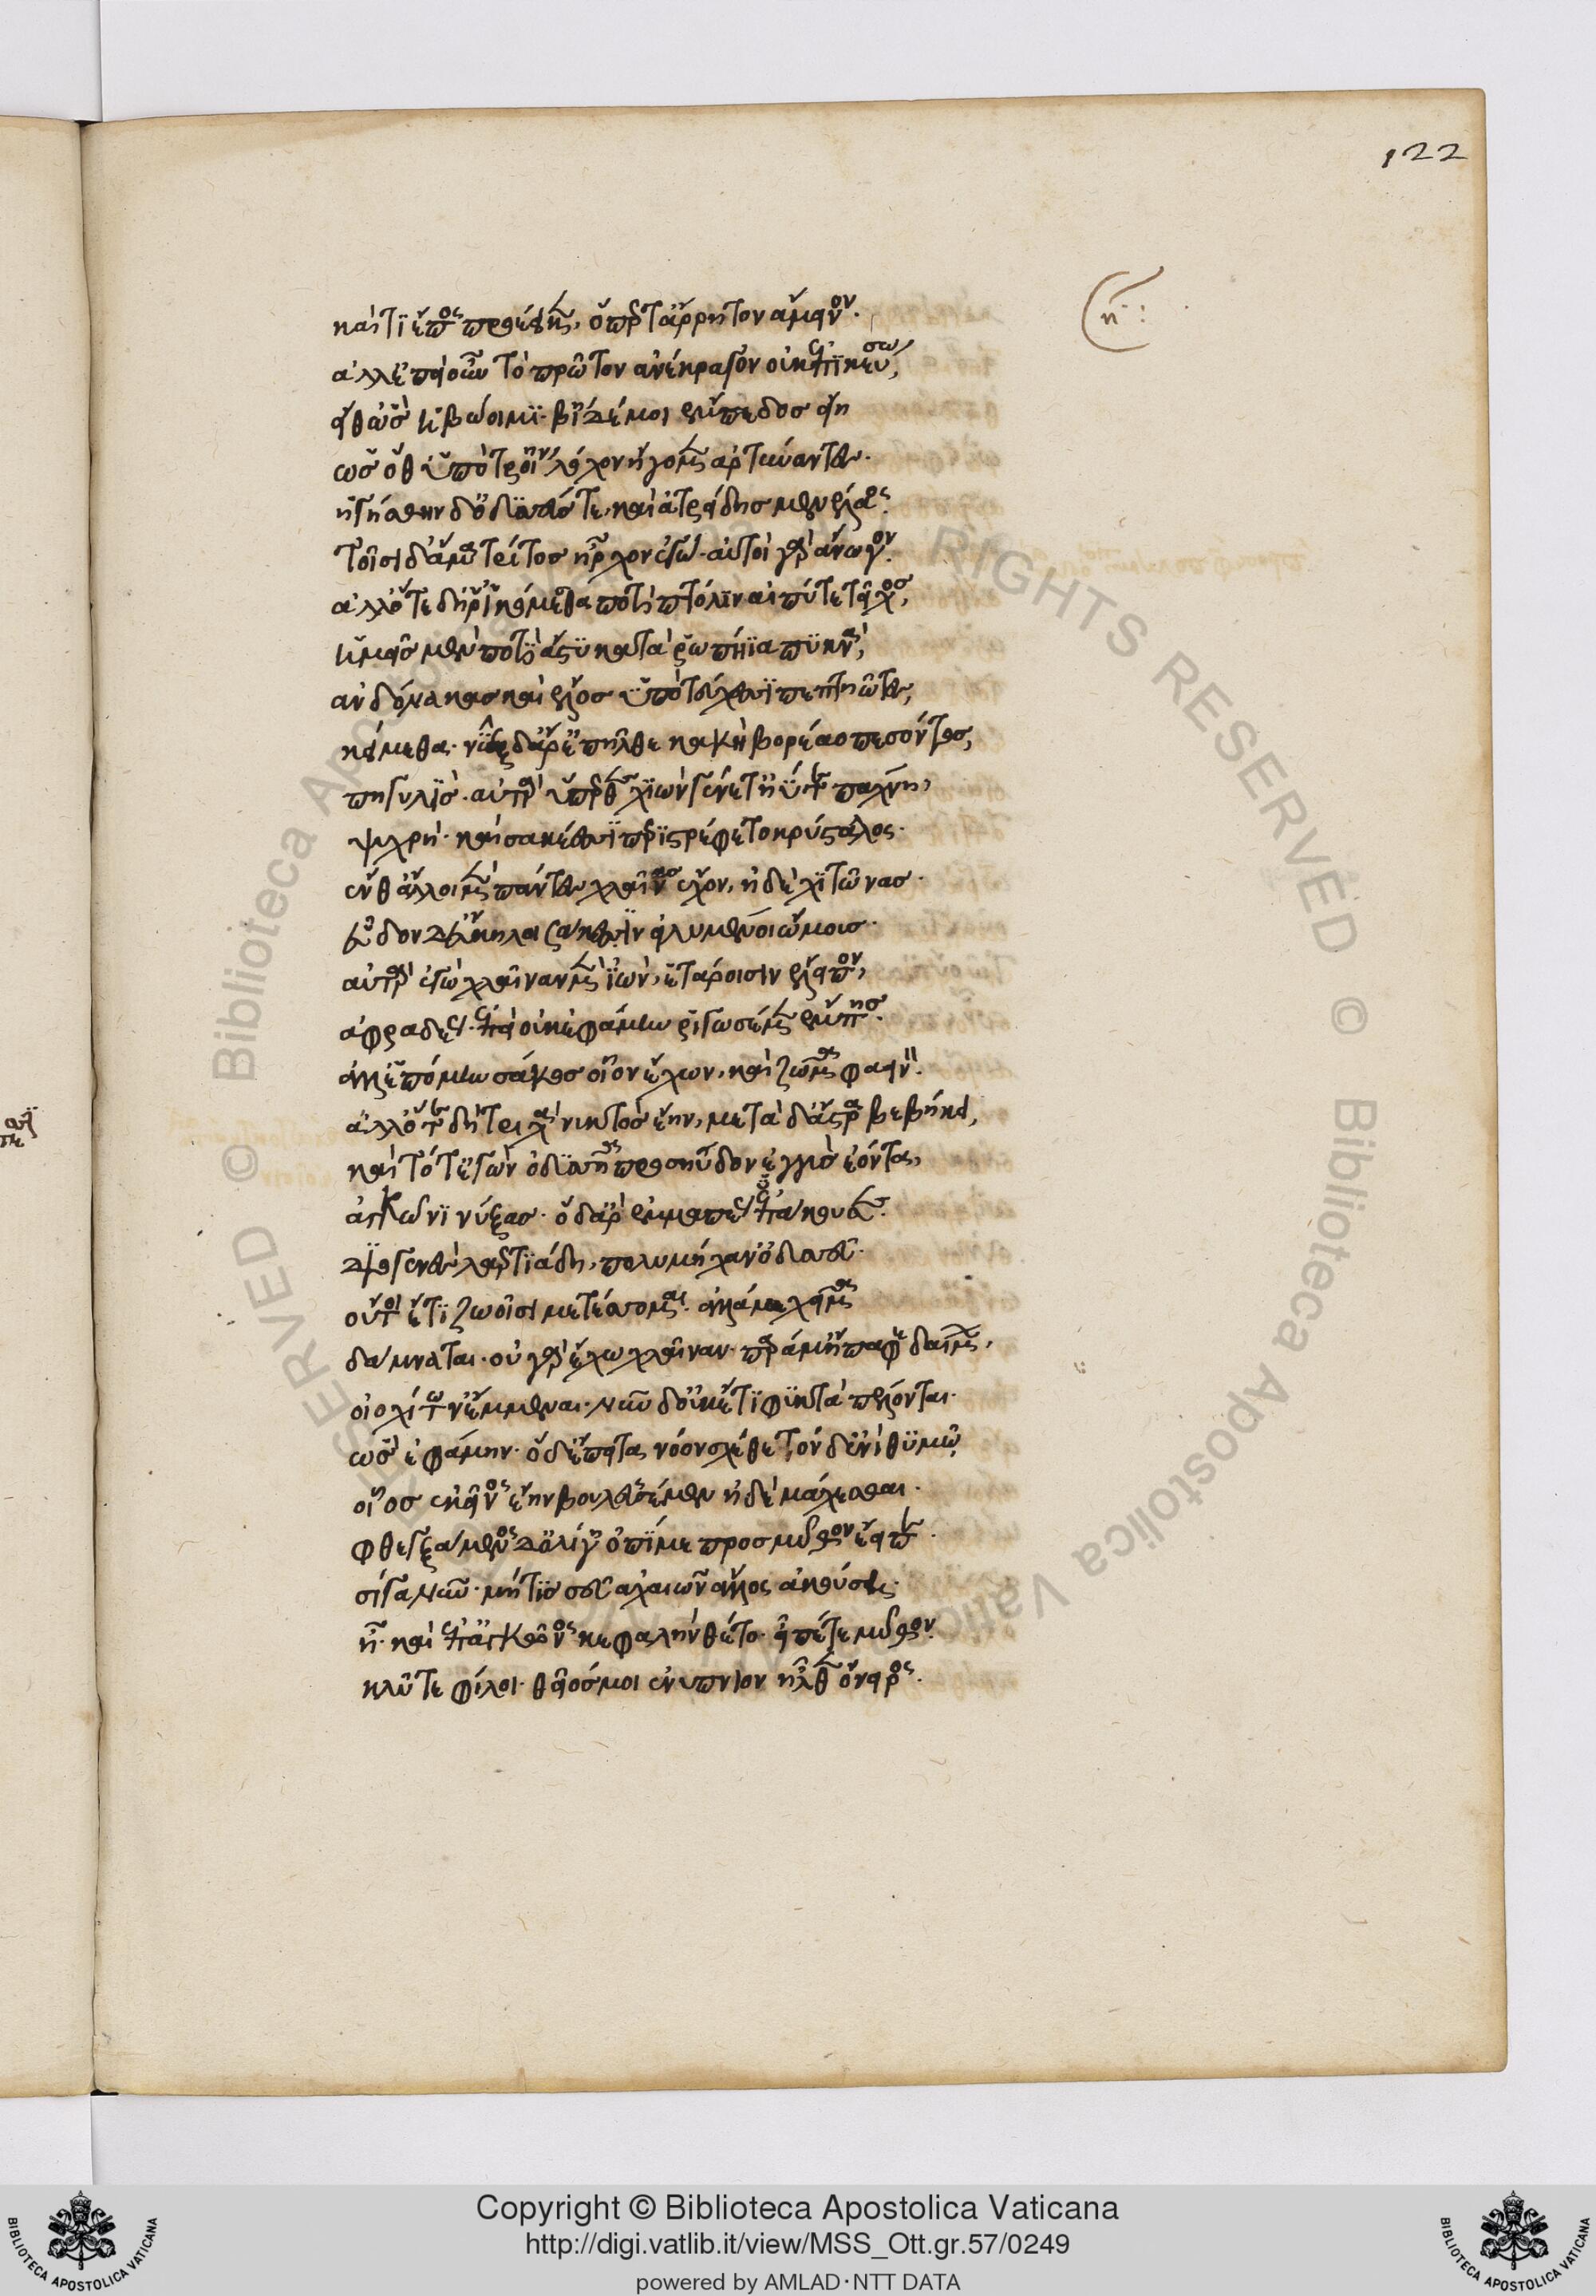 122
η:
καί τι ἔπος προέηκεν, ὅπερ τ' ἄρρητον ἄμεινον.
ἀλλ' ἐπεὶ οὖν τὸ πρῶτον ἀνέκραγον οὐκ ἐπικεύσω,
εἴθ' ὣς ἡβώοιμι· βίη δέ μοι ἔμπεδος εἴη
ὡς ὅθ' ὑπὸ τροίην λόχον ἤγομεν ἀρτύναντες.
ἡγείσθην δ' ὀδυσσεύς τε, καὶ ἀτρείδης μενέλαος.
τοῖσι δ' ἅμα τρίτος ἦρχον ἐγών· αὐτοὶ γὰρ ἄνωγον.
ἀλλ' ὅτε δή ῥ' ἱκόμεθα ποτὶ πτόλιν αἰπύ τε τεῖχος,
ἡμεῖς μὲν ποτὶ ἄστυ κατὰ ῥωπήϊα πυκνὰ,
ἀν δόνακας καὶ ἕλος ὑπὸ τεύχεσι πεπτηῶτες,
κείμεθα. νὺξ δ' ἄρ' ἐπῆλθε κακὴ βορέαο πεσόντος,
πηγυλίς. αὐτὰρ ὕπερθεν χιὼν γένετ' ἠΰτε πάχνη,
ψυχρή· καὶ σακέεσσι περιτρέφετο κρύσταλος.
ἔνθ' ἄλλοι μὲν πάντες χλαίνας ἔχον, ἠδὲ χιτῶνας.
εὗδον δ' εὔκηλοι σάκεσιν εἰλυμένοι ὤμοις.
αὐτὰρ ἐγὼ χλαῖναν μὲν ἰὼν, ἑτάροισιν ἔλειπον,
ἀφραδέως. ἐπεὶ οὐκ ἐφάμην ῥιγωσέμεν ἔμπης.
ἀλλ' ἑπόμην σάκος οἶον ἔχων, καὶ ζῶμα φαεινόν.
ἀλλ' ὅτε δὴ τρίχα νυκτὸς ἔην, μετὰ δ' ἄστρα βεβήκει,
καὶ τότ' ἐγὼν ὀδυσῆα προσηύδον ἐγγὺς ἐόντα,
ἀγκῶνι νύξας. ὁ δ' ἄρ' ἐμμαπέως ἐπάκουσεν.
διογενὲς λαερτιάδη, πολυμήχαν' ὀδυσσεῦ.
οὔτοι ἔτι ζωοῖσι μετέσσομαι. ἀλλά με χεῖμα
δάμναται. οὐ γὰρ ἔχω χλαῖναν. παρά μ' ἤπαφε δαίμων,
οἰοχίτων' ἔμμεναι. νῦν δ' οὐκέτι φυκτὰ πέλονται.
ὣς ἐφάμην. ὁ δ' ἔπειτα νόον σχέθε τόνδ' ἐνὶ θυμῷ
οἷος κεῖνος ἔην βουλευέμεν ἠδὲ μάχεσθαι.
φθεγξάμενος δ' ὀλίγῃ ὀπί με προς μῦθον ἔειπεν.
σίγα νῦν. μήτις σεῦ ἀχαιῶν ἄλλος ἀκούσῃ.
ἦ. καὶ ἐπ' ἀγκῶνος κεφαλὴν θέτο. εἶπέ τε μῦθον.
κλῦτε φίλοι. θεῖός μοι ἐνύπνιον ἦλθεν ὄνειρος.
Copyright © Biblioteca Apostolica Vaticana
http://digi.vatlib.it/view/MSS_Ott.gr.57/0249
powered by AMLAD·NTT DATA